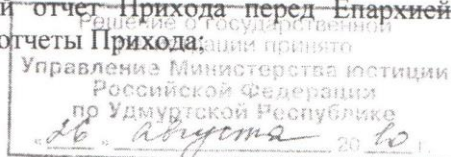 й отчет Прихода перед Епархией
отчеты Прихода;
Решение о государственной
регистрации принято
Управление Министерства юстиции
Российской Федерации
по Удмуртской Республике
«26» августа 2010 г.